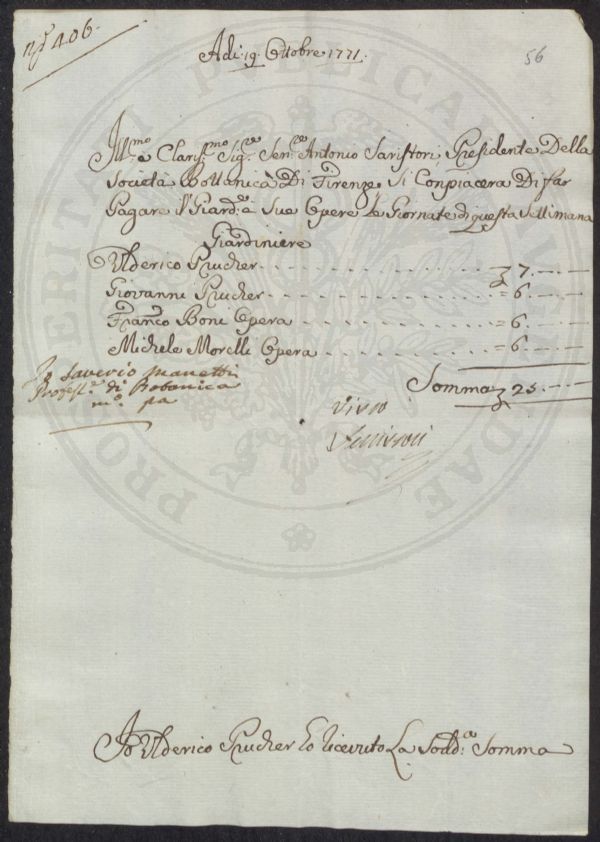 N.º 406.
56
Adi: 19. Ottobre 1771.
Ill:mo e Claris:mo Sig:re Sen:re Antonio Saristori Presidente Della
Società Bottanica Di Firenze Si Conpiacera Di far
Pagare l'Giard:e e Sue Opere Le Giornate di questa Settimana
Giardiniere
Ulderico Prucher 7.
Giovanni Prucher 6.
Fran:co Boni Opera 6.
Michele Morelli Opera 6.
Somma 25.
Io Saverio Manetti
Profess:e di Botanica
m:o pa
Visto
Io Ulderico Prucher ho ricevuto La Sodd:a Somma
PROSPERITATI PUBLICAE